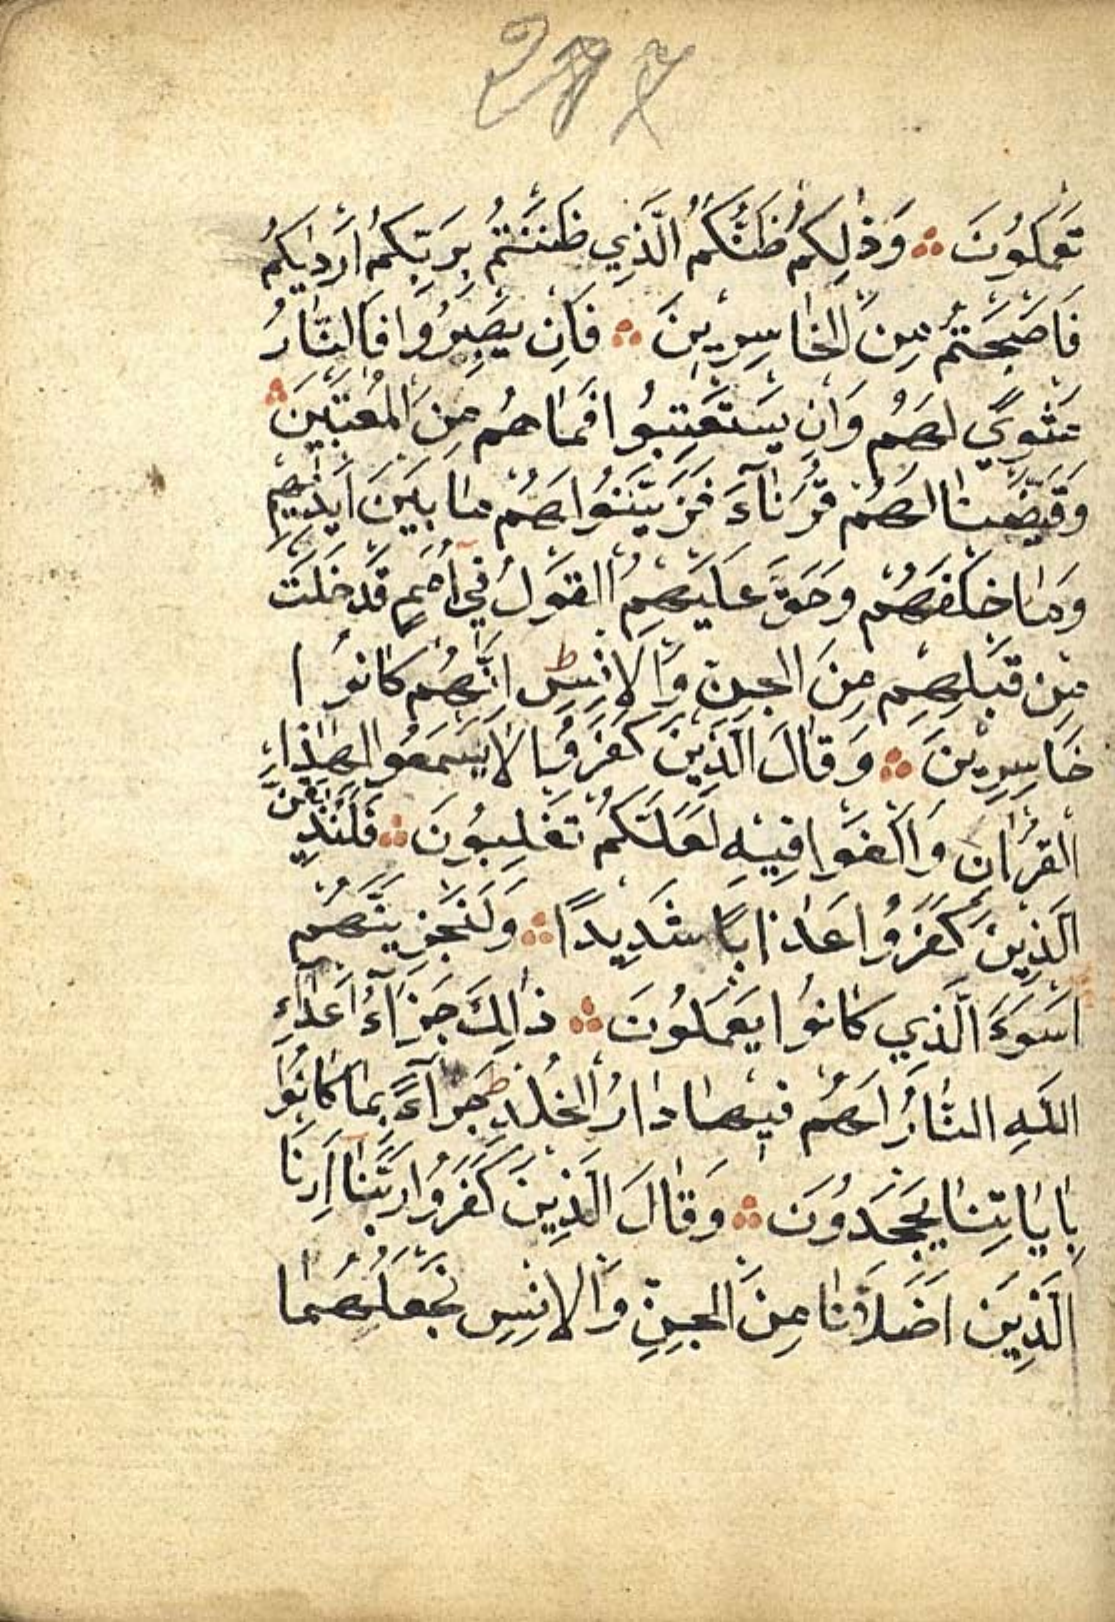 297
تَعْمَلُونَ ۞ وَذٰلِكُمْ ظَنُّكُمُ الَّذِي ظَنَنْتُمْ بِرَبِّكُمْ اَرْدٰيكُمْ
فَاَصْبَحْتُمْ مِنَ الْخَاسِرِينَ ۞ فَاِنْ يَصْبِرُوا فَالنَّارُ
مَثْوًي لَهُمْ وَاِنْ يَسْتَعْتِبُوا فَمَا هُمْ مِنَ الْمُعْتَبِينَ ۞
وَقَيَّضْنَا لَهُمْ قُرَنَآءَ فَزَيَّنُوا لَهُمْ مَا بَيْنَ اَيْدِيهِمْ
وَمَا خَلْفَهُمْ وَحَقَّ عَلَيْهِمُ الْقَوْلُ فِي اُمَمٍ قَدْ خَلَتْ
مِنْ قَبْلِهِمْ مِنَ الْجِنِّ وَالْاِنْسِ ط اِنَّهُمْ كَانُوا
خَاسِرِينَ ۞ وَقَالَ الَّذِينَ كَفَرُوا لَا تَسْمَعُوا لِهٰذَا
الْقُرْاٰنِ وَالْغَوْا فِيهِ لَعَلَّكُمْ تَغْلِبُونَ ۞ فَلَنُذِيقَنَّ
الَّذِينَ كَفَرُوا عَذَابًا شَدِيدًا ۞ وَلَنَجْزِيَنَّهُمْ
اَسْوَءَ الَّذِي كَانُوا يَعْمَلُونَ ۞ ذَالِكَ جَزَآءُ اَعْدَاءِ
اللّٰهِ النَّارُ لَهُمْ فِيهَا دَارُ الْخُلْدِ ط جَزَآءً بِمَا كَانُوا
بِاٰيَاتِنَا يَجْحَدُونَ ۞ وَقَالَ الَّذِينَ كَفَرُوا رَبَّنَا اَرِنَا
الَّذِيْنَ اَضَلَّانَا مِنَ الْجِنِّ وَالْاِنْسِ نَجْعَلْهُمَا